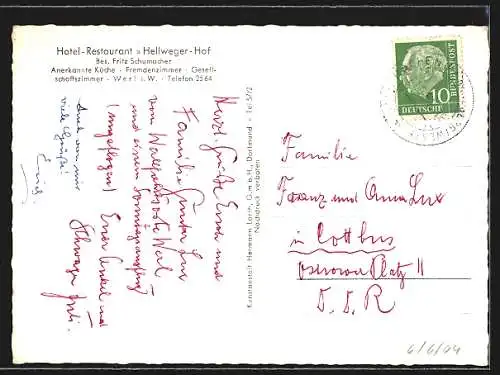 Hotel-Restaurant » Hellweger-Hof
Bes. Fritz Schumacher
Anerkannte Küche · Fremdenzimmer · Gesell-
schaftszimmer · Werl i. W. · Telefon 2564
Auch von mir
viele Grüße!
Herzl. Grüße Euch und
Familie
vom Wallfahrtsorte Werl
und einem Sonntagsausflug
Euer Onkel und
Schwager
Kunstanstalt Hermann Lorch, G.m.b.H., Dortmund · Tel 5172
Nachdruck verboten
10
DEUTSCHE BUNDESPOST
Familie
Franz und Anna Lux
in Cottbus
Ostrower Platz 11
D. D. R
6/6/04